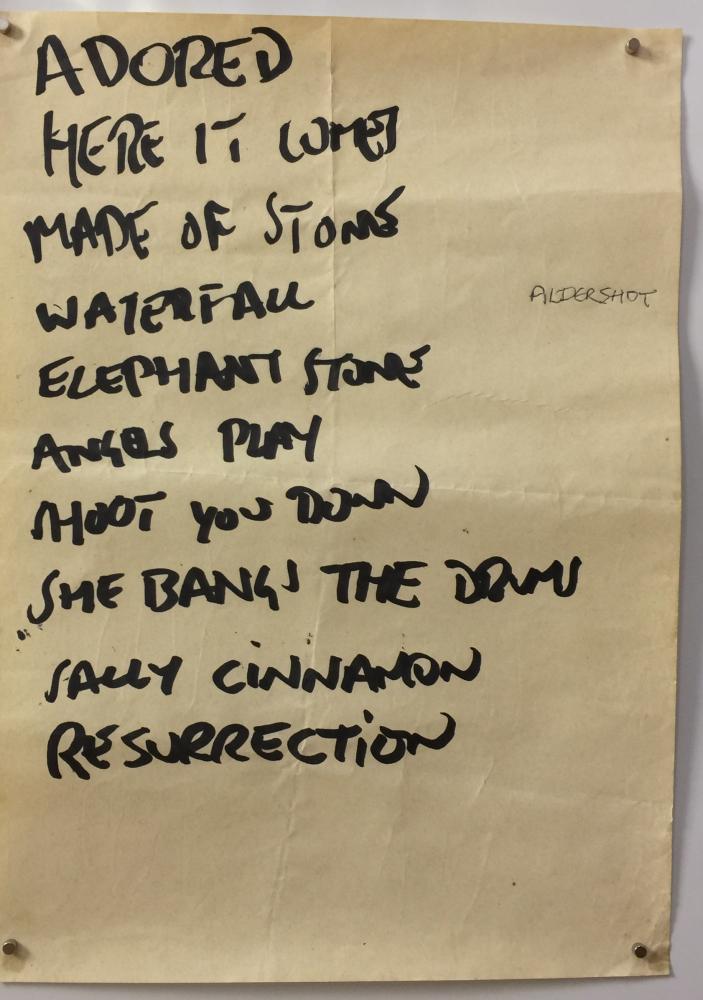 ADORED
HERE IT COMES
MADE OF STONE
WATERFALL
ALDERSHOT
ELEPHANT STONE
ANGELS PLAY
SHOOT YOU DOWN
SHE BANGS THE DRUMS
SALLY CINNAMON
RESURRECTION